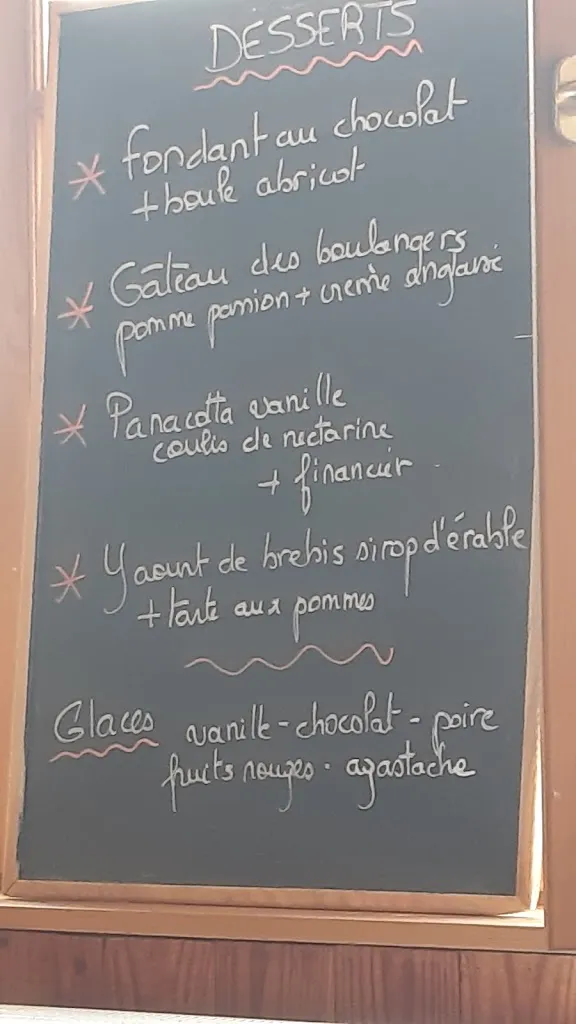 DESSERTS
* fondant au chocolat
+ boule abricot
* Gâteau des boulangers
pomme passion + creme anglaise
* Panacotta vanille
coulis de nectarine
+ financier
* Yaourt de brebis sirop d'érable
+ tarte aux pommes
Glaces vanille - chocolat - poire
fruits rouges - agastache